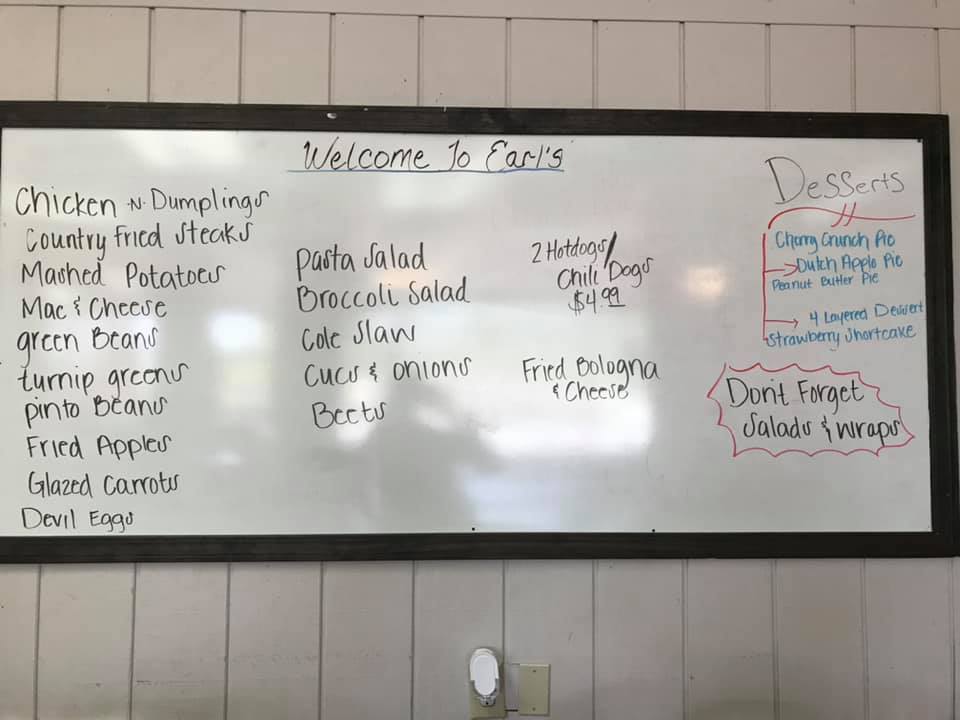 Welcome To Earl's
Chicken -N- Dumplings
Country Fried Steaks
Mashed Potatoes
Mac & Cheese
green Beans
turnip greens
pinto Beans
Fried Apples
Glazed Carrots
Devil Eggs
Pasta Salad
Broccoli Salad
Cole Slaw
Cucs & onions
Beets
2 Hotdogs/
Chili Dogs
$4.99
Fried Bologna
& Cheese
Desserts
Cherry Crunch Pie
Dutch Apple Pie
Peanut Butter Pie
4 Layered Dessert
Strawberry Shortcake
Don't Forget
Salads & Wraps